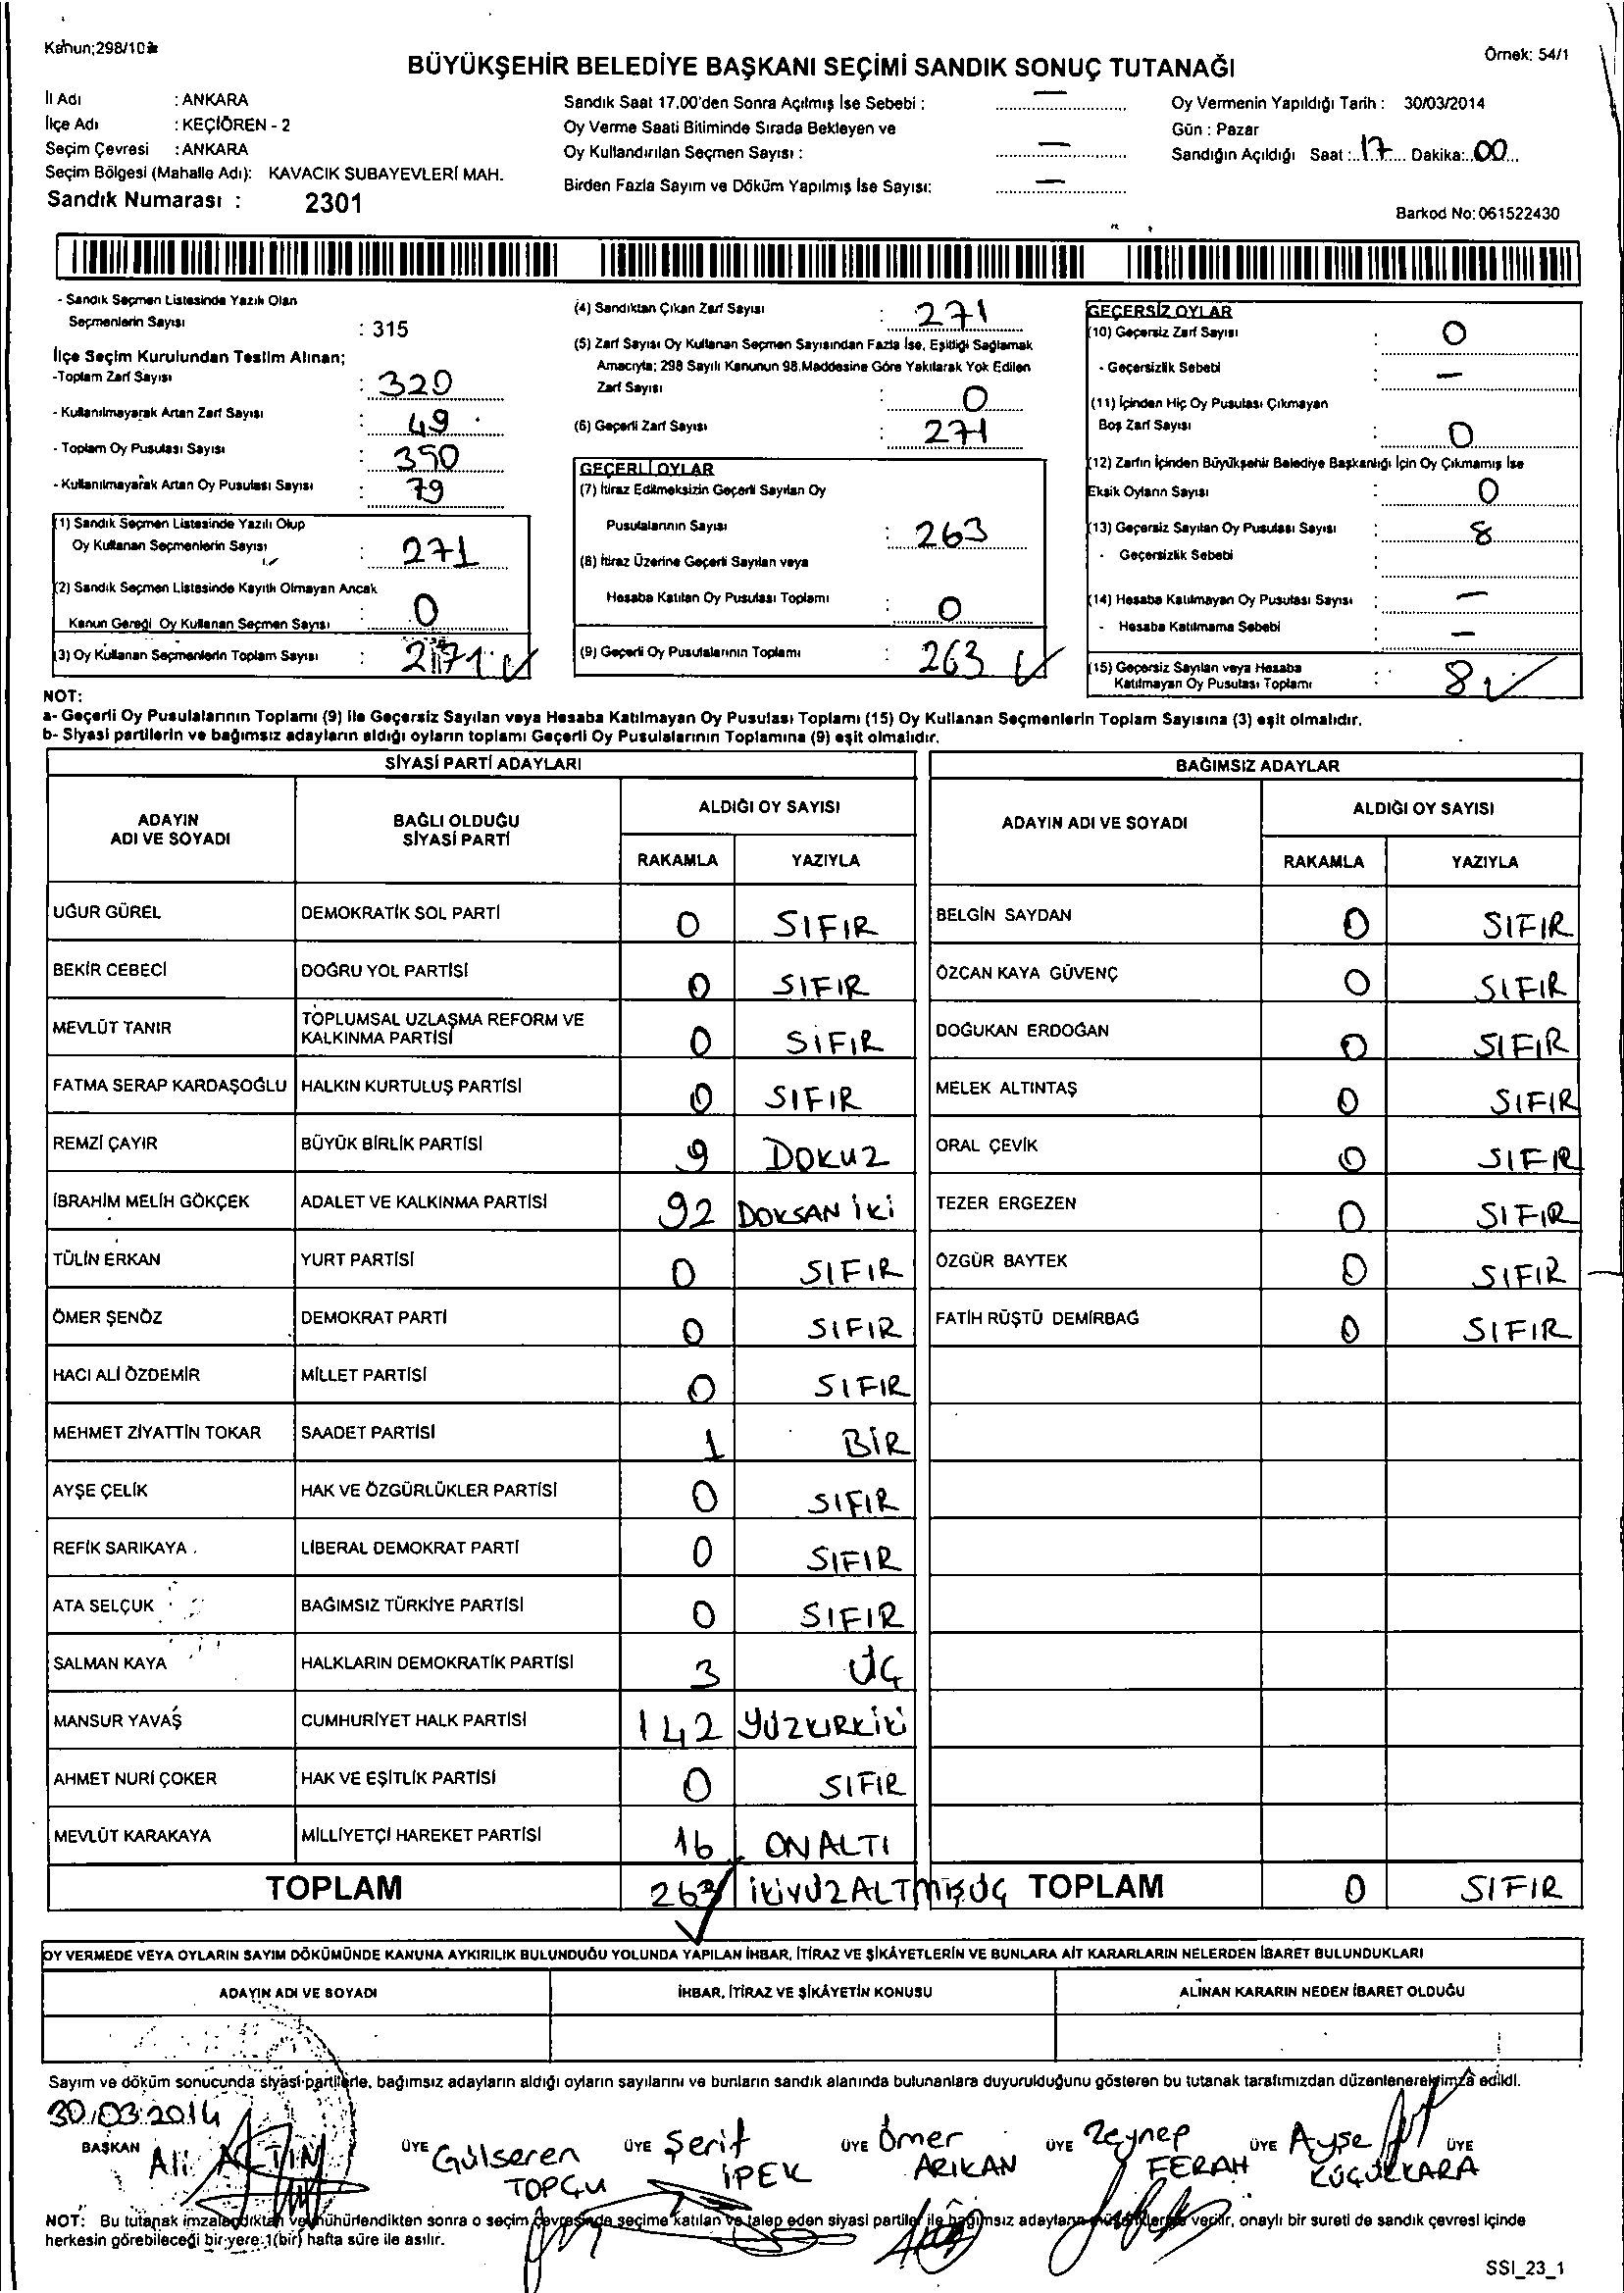 Kanun;298/10
Örnek: 54/1
BÜYÜKŞEHİR BELEDİYE BAŞKANI SEÇİMİ SANDIK SONUÇ TUTANAĞI
İl Adı : ANKARA
İlçe Adı : KEÇİÖREN - 2
Seçim Çevresi : ANKARA
Seçim Bölgesi (Mahalle Adı): KAVACIK SUBAYEVLERİ MAH.
Sandık Numarası : 2301
Sandık Saat 17.00'den Sonra Açılmış İse Sebebi : —
Oy Verme Saati Bitiminde Sırada Bekleyen ve
Oy Kullandırılan Seçmen Sayısı : —
Birden Fazla Sayım ve Döküm Yapılmış İse Sayısı: —
Oy Vermenin Yapıldığı Tarih : 30/03/2014
Gün : Pazar
Sandığın Açıldığı Saat : 17 Dakika: 00
Barkod No: 061522430
- Sandık Seçmen Listesinde Yazılı Olan
Seçmenlerin Sayısı : 315
İlçe Seçim Kurulundan Teslim Alınan;
-Toplam Zarf Sayısı : 320
- Kullanılmayarak Artan Zarf Sayısı : 49
- Toplam Oy Pusulası Sayısı : 350
- Kullanılmayarak Artan Oy Pusulası Sayısı : 79
(1) Sandık Seçmen Listesinde Yazılı Olup
Oy Kullanan Seçmenlerin Sayısı : 271
(2) Sandık Seçmen Listesinde Kayıtlı Olmayan Ancak
Kanun Gereği Oy Kullanan Seçmen Sayısı : 0
(3) Oy Kullanan Seçmenlerin Toplam Sayısı : 271
(4) Sandıktan Çıkan Zarf Sayısı : 271
(5) Zarf Sayısı Oy Kullanan Seçmen Sayısından Fazla İse, Eşitliği Sağlamak
Amacıyla; 298 Sayılı Kanunun 98.Maddesine Göre Yakılarak Yok Edilen
Zarf Sayısı : 0
(6) Geçerli Zarf Sayısı : 271
GEÇERLİ OYLAR
(7) İtiraz Edilmeksizin Geçerli Sayılan Oy
Pusulalarının Sayısı : 263
(8) İtiraz Üzerine Geçerli Sayılan veya
Hesaba Katılan Oy Pusulası Toplamı : 0
(9) Geçerli Oy Pusulalarının Toplamı : 263
GEÇERSİZ OYLAR
(10) Geçersiz Zarf Sayısı : 0
- Geçersizlik Sebebi : —
(11) İçinden Hiç Oy Pusulası Çıkmayan
Boş Zarf Sayısı : 0
(12) Zarfın İçinden Büyükşehir Belediye Başkanlığı İçin Oy Çıkmamış İse
Eksik Oyların Sayısı : 0
(13) Geçersiz Sayılan Oy Pusulası Sayısı : 8
- Geçersizlik Sebebi :
(14) Hesaba Katılmayan Oy Pusulası Sayısı : —
- Hesaba Katılmama Sebebi : —
(15) Geçersiz Sayılan veya Hesaba
Katılmayan Oy Pusulası Toplamı : 8
NOT:
a- Geçerli Oy Pusulalarının Toplamı (9) ile Geçersiz Sayılan veya Hesaba Katılmayan Oy Pusulası Toplamı (15) Oy Kullanan Seçmenlerin Toplam Sayısına (3) eşit olmalıdır.
b- Siyasi partilerin ve bağımsız adayların aldığı oyların toplamı Geçerli Oy Pusulalarının Toplamına (9) eşit olmalıdır.
SİYASİ PARTİ ADAYLARI
ADAYIN ADI VE SOYADI BAĞLI OLDUĞU SİYASİ PARTİ ALDIĞI OY SAYISI
RAKAMLA YAZIYLA
UĞUR GÜREL DEMOKRATİK SOL PARTİ 0 SIFIR
BEKİR CEBECİ DOĞRU YOL PARTİSİ 0 SIFIR
MEVLÜT TANIR TOPLUMSAL UZLAŞMA REFORM VE KALKINMA PARTİSİ 0 SİFIR
FATMA SERAP KARDAŞOĞLU HALKIN KURTULUŞ PARTİSİ 0 SIFIR
REMZİ ÇAYIR BÜYÜK BİRLİK PARTİSİ 9 DOKUZ
İBRAHİM MELİH GÖKÇEK ADALET VE KALKINMA PARTİSİ 92 DOKSAN İKİ
TÜLİN ERKAN YURT PARTİSİ 0 SIFIR
ÖMER ŞENÖZ DEMOKRAT PARTİ 0 SIFIR
HACI ALİ ÖZDEMİR MİLLET PARTİSİ 0 SIFIR
MEHMET ZİYATTİN TOKAR SAADET PARTİSİ 1 BİR
AYŞE ÇELİK HAK VE ÖZGÜRLÜKLER PARTİSİ 0 SIFIR
REFİK SARIKAYA LİBERAL DEMOKRAT PARTİ 0 SIFIR
ATA SELÇUK BAĞIMSIZ TÜRKİYE PARTİSİ 0 SIFIR
SALMAN KAYA HALKLARIN DEMOKRATİK PARTİSİ 3 ÜÇ
MANSUR YAVAŞ CUMHURİYET HALK PARTİSİ 142 YÜZKIRKİKİ
AHMET NURİ ÇOKER HAK VE EŞİTLİK PARTİSİ 0 SIFIR
MEVLÜT KARAKAYA MİLLİYETÇİ HAREKET PARTİSİ 16 ONALTI
TOPLAM 263 İKİYÜZALTMIŞÜÇ
BAĞIMSIZ ADAYLAR
ADAYIN ADI VE SOYADI ALDIĞI OY SAYISI
RAKAMLA YAZIYLA
BELGİN SAYDAN 0 SIFIR
ÖZCAN KAYA GÜVENÇ 0 SIFIR
DOĞUKAN ERDOĞAN 0 SIFIR
MELEK ALTINTAŞ 0 SIFIR
ORAL ÇEVİK 0 SIFIR
TEZER ERGEZEN 0 SIFIR
ÖZGÜR BAYTEK 0 SIFIR
FATİH RÜŞTÜ DEMİRBAĞ 0 SIFIR
TOPLAM 0 SIFIR
OY VERMEDE VEYA OYLARIN SAYIM DÖKÜMÜNDE KANUNA AYKIRILIK BULUNDUĞU YOLUNDA YAPILAN İHBAR, İTİRAZ VE ŞİKÂYETLERİN VE BUNLARA AİT KARARLARIN NELERDEN İBARET BULUNDUKLARI
ADAYIN ADI VE SOYADI İHBAR, İTİRAZ VE ŞİKÂYETİN KONUSU ALINAN KARARIN NEDEN İBARET OLDUĞU
Sayım ve döküm sonucunda siyasi partilerle, bağımsız adayların aldığı oyların sayılarını ve bunların sandık alanında bulunanlara duyurulduğunu gösteren bu tutanak tarafımızdan düzenlenerek imza edildi.
30.03.2014
BAŞKAN Ali ALTIN
ÜYE Gülseren TOPÇU
ÜYE Şerif İPEK
ÜYE Ömer ARIKAN
ÜYE Zeynep FERAH
ÜYE Ayşe KÜÇÜKKARA
ÜYE
NOT: Bu tutanak imzalandıktan ve mühürlendikten sonra o seçim çevresinde seçime katılan ve talep eden siyasi partiler ile bağımsız adayların müşahitlerine verilir, onaylı bir sureti de sandık çevresi içinde
herkesin görebileceği bir yere 1(bir) hafta süre ile asılır.
SSI_23_1